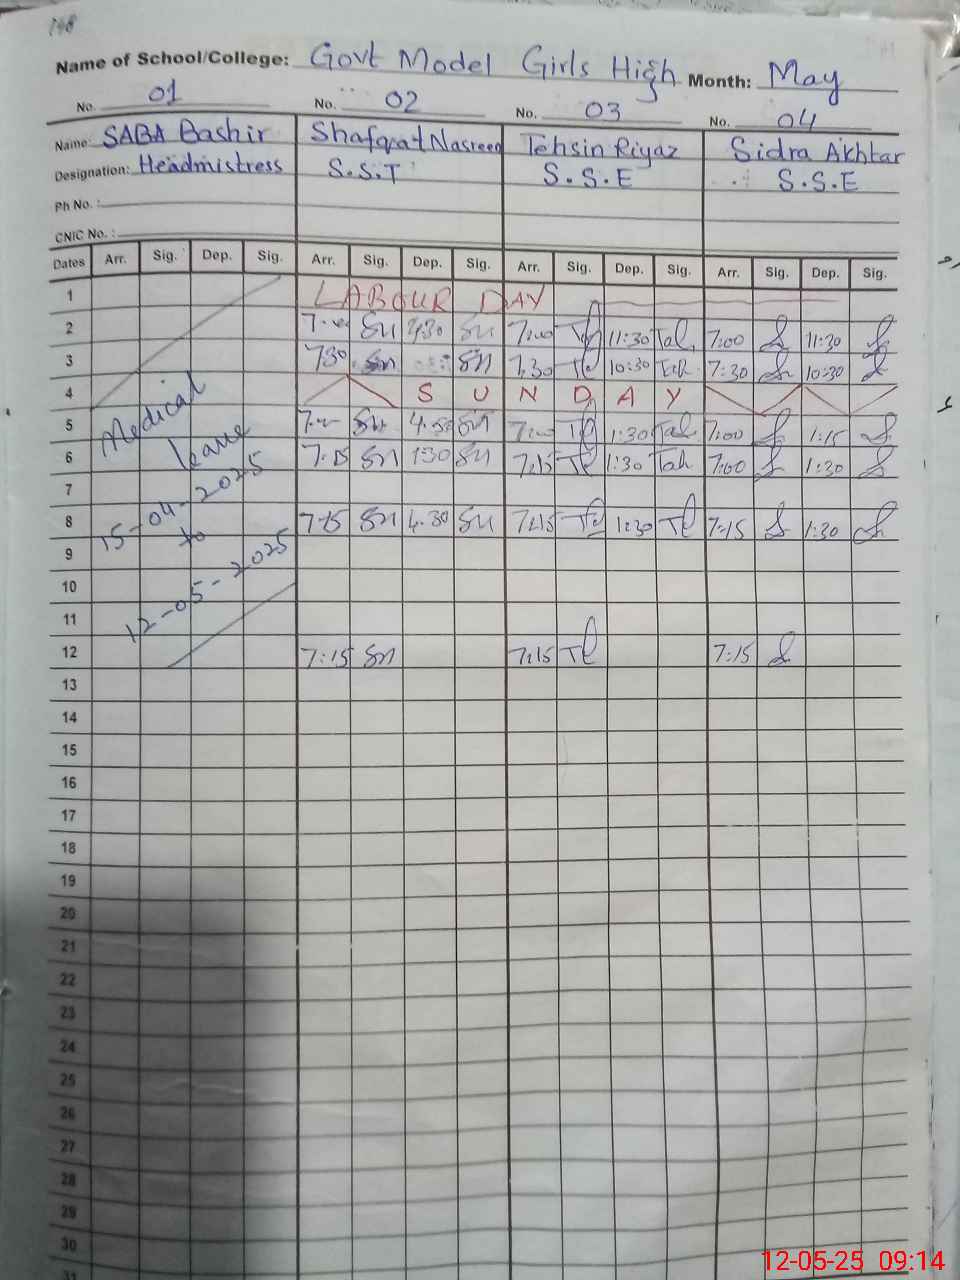 168
Name of School/College: Govt Model Girls High Month: May
No. 01 No. 02 No. 03 No. 04
Name: SABA Bashir Shafqat Nasreen Tehsin Riyaz Sidra Akhtar
Designation: Headmistress S.S.T S.S.E S.S.E
Ph No. :
CNIC No. :
Dates Arr. Sig. Dep. Sig. Arr. Sig. Dep. Sig. Arr. Sig. Dep. Sig. Arr. Sig. Dep. Sig.
1 LABOUR DAY
2 Sn Sn 7:00 11:30 7:00 11:30
3 730 Sn Sn 7:30 10:30 7:30 10:30
4 SUNDAY
Medical
5 Sn Sn 1:30 7:00 1:15
leave
6 7:15 Sn 1:30 Sn 7:15 1:30 Tah 7:00 1:30
7
15-04-2025
8 7:15 Sn 4.30 Sn 7:15 1:30 7:15 1:30
to
9
10
12-05-2025
11
12 7:15 Sn 7:15 7:15
13
14
15
16
17
18
19
20
21
22
23
24
25
26
27
28
29
30
31
12-05-25 09:14